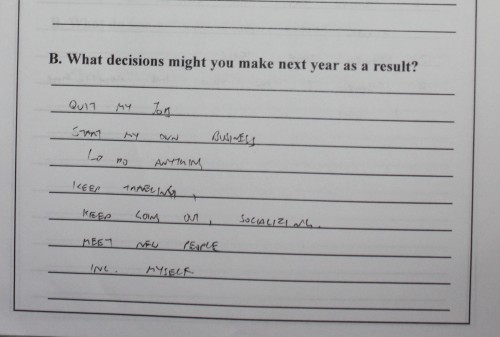 B. What decisions might you make next year as a result?
QUIT MY JOB
START MY OWN BUSINESS
DO ANYTHING
KEEP TRAVELING,
KEEP GOING OUT, SOCIALIZING.
MEET NEW PEOPLE
INC. MYSELF